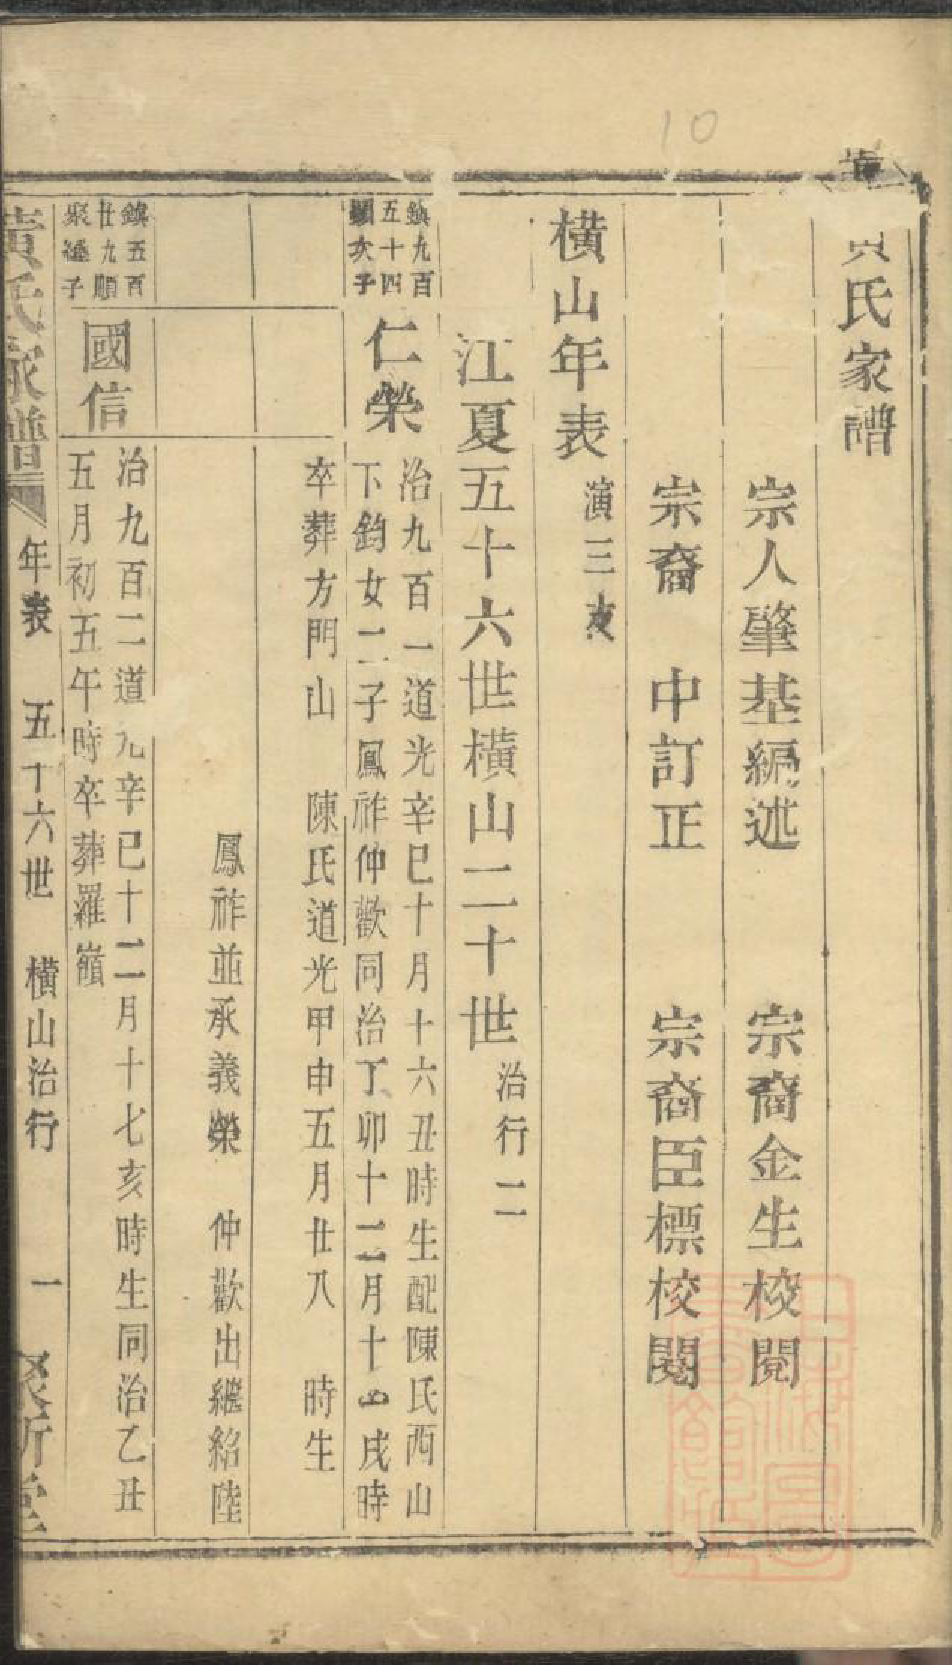 黃氏家譜
宗人肇基編述 宗裔金生校閱
宗裔 中訂正 宗裔臣標校閱
橫山年表 演三支
江夏五十六世橫山二十世 治行二
鎮九百
五十四
次子
仁榮
治九百一道光辛巳十月十六丑時生配陳氏西山
下鈞女二子鳳祚仲歡同治丁卯十二月十四戌時
卒葬方門山 陳氏道光甲申五月廿八 時生
鳳祚並承義榮 仲歡出繼紹陸
鎮五百
廿九順
聚 子
國信
治九百二道光辛巳十二月十七亥時生同治乙丑
五月初五午時卒葬羅嶺
黃氏家譜 年表 五十六世 橫山治行 一 聚斯堂
10